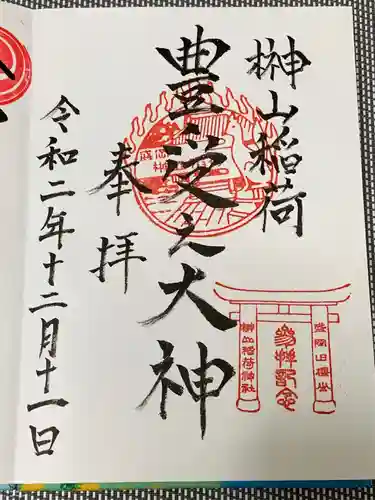 榊山稲荷
豊受之大神
奉拝
令和二年十二月十一日
盛岡
参拝記念
榊山稲荷神社